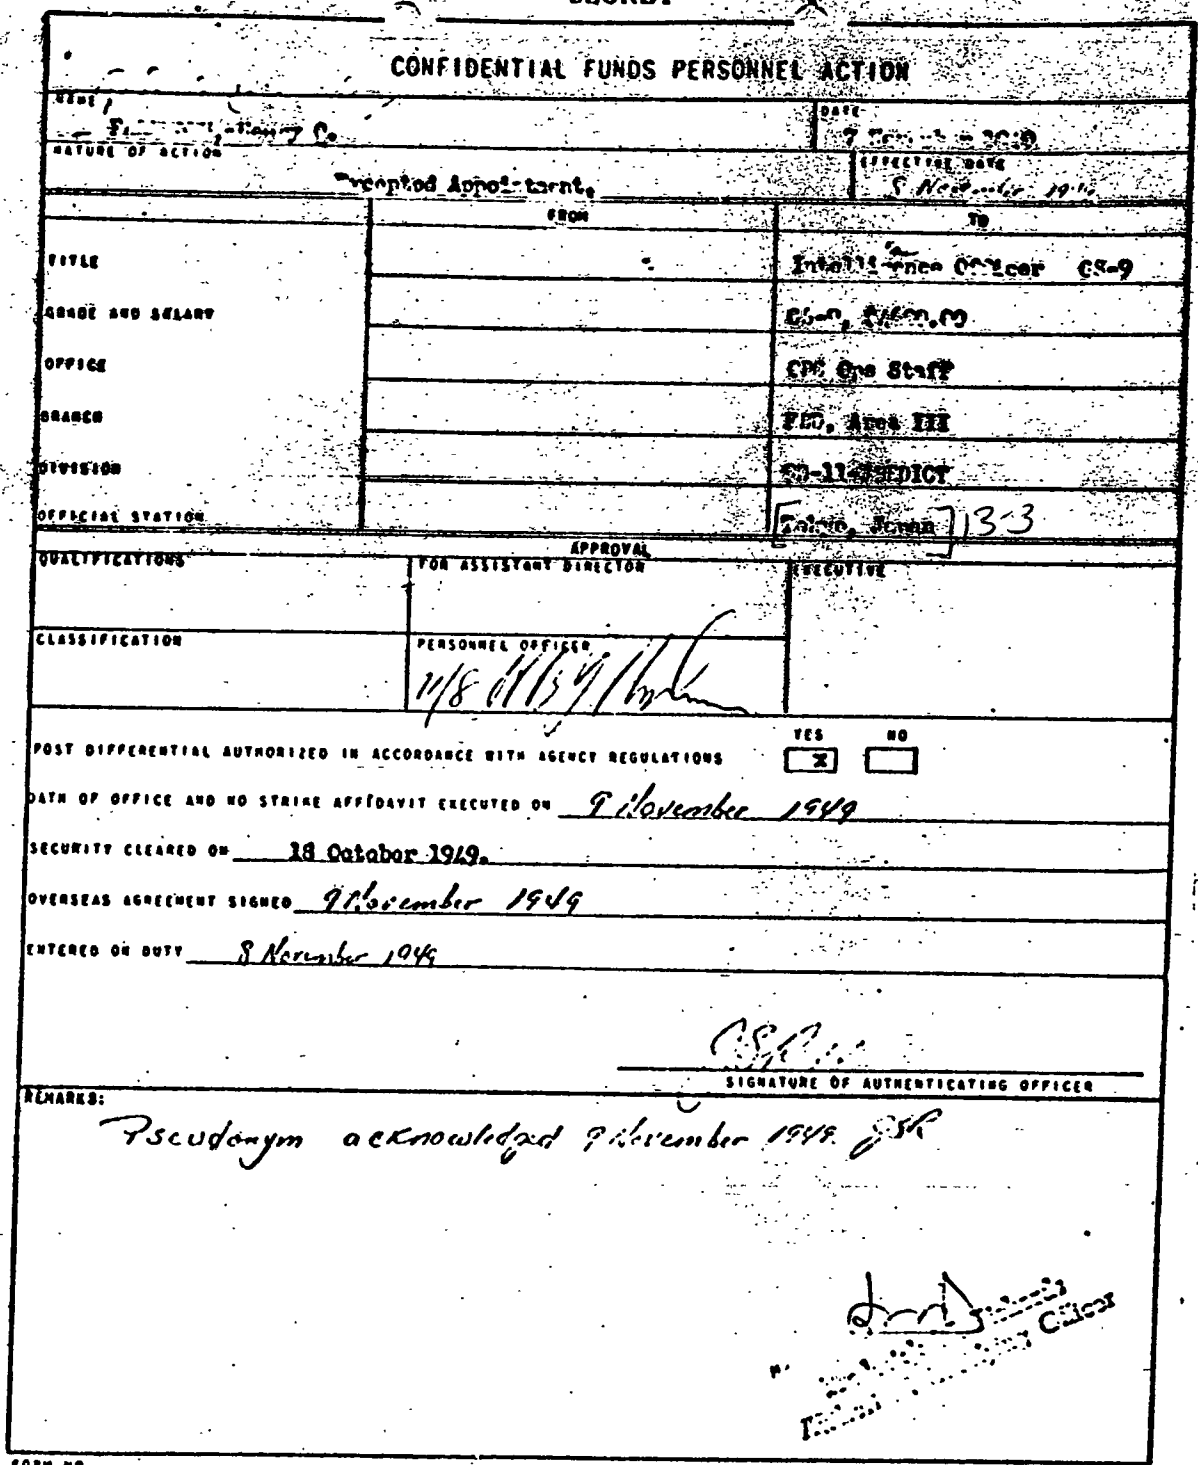 CONFIDENTIAL FUNDS PERSONNEL ACTION
NAME
DATE
NATURE OF ACTION
EFFECTIVE DATE
Excepted Appointment.
8 November
FROM
TO
TITLE
Intelligence Officer GS-9
GRADE AND SALARY
OFFICE
OPC Ops Staff
BRANCH
FED, Area III
DIVISION
OFFICIAL STATION
[Tokyo, Japan] 13-3
APPROVAL
QUALIFICATIONS
FOR ASSISTANT DIRECTOR
EXECUTIVE
CLASSIFICATION
PERSONNEL OFFICER
11/8
YES NO
POST DIFFERENTIAL AUTHORIZED IN ACCORDANCE WITH AGENCY REGULATIONS X
OATH OF OFFICE AND NO STRIKE AFFIDAVIT EXECUTED ON 9 November 1949
SECURITY CLEARED ON 18 October 1949.
OVERSEAS AGREEMENT SIGNED 9 November 1949
ENTERED ON DUTY 8 November 1949
SIGNATURE OF AUTHENTICATING OFFICER
REMARKS:
Pseudonym acknowledged 9 November 1949. JSR
Officer
FORM NO